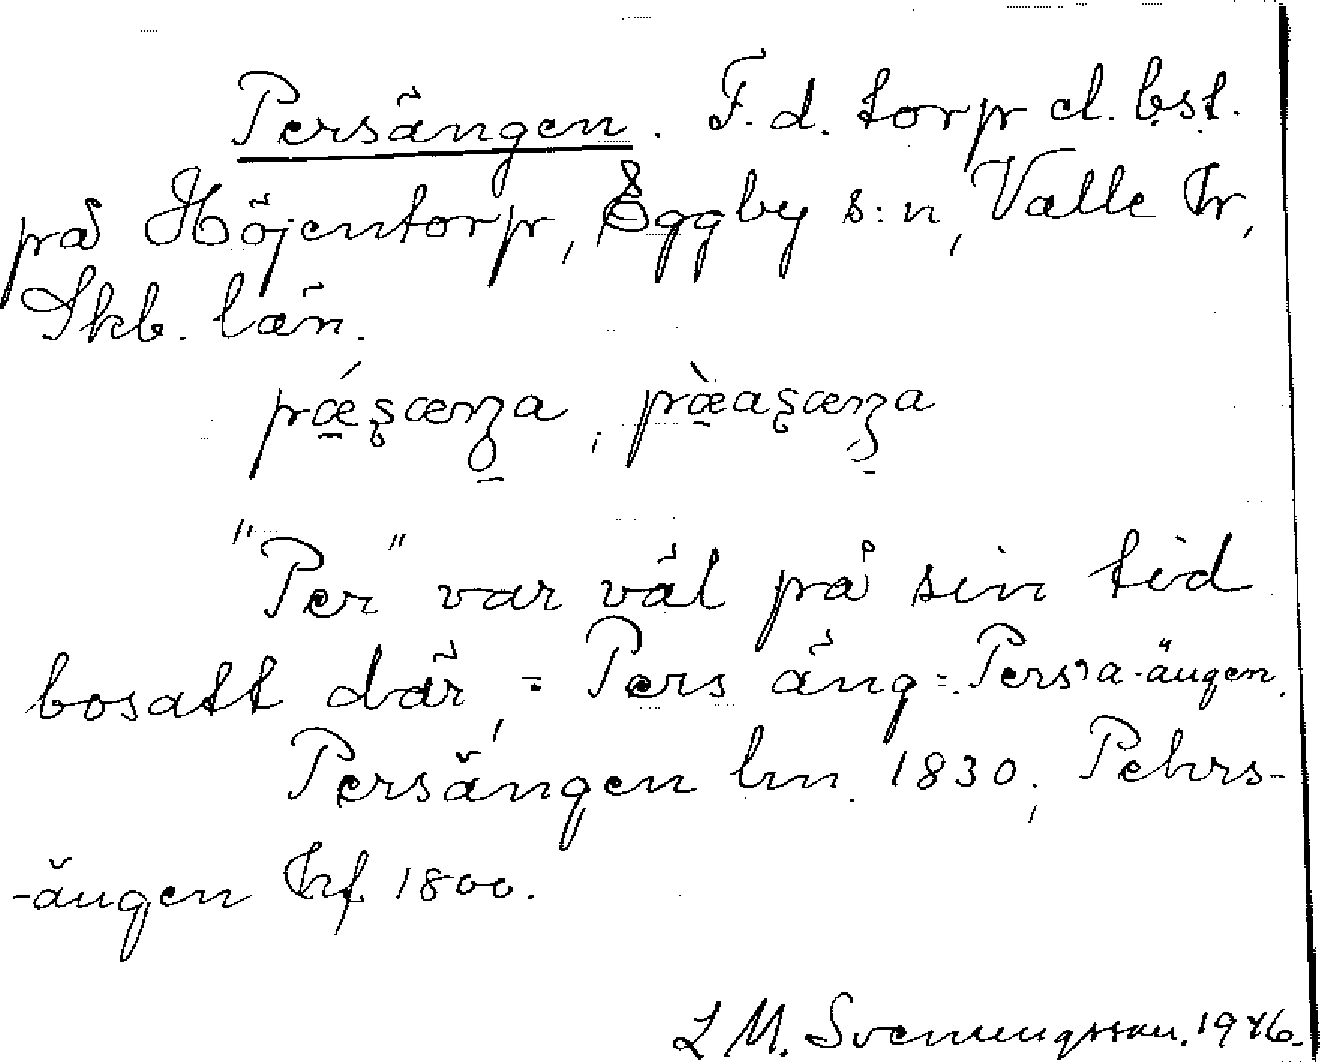 Persängen. F.d. torp el. bst.
på Höjentorp, Eggby s:n, Valle hr,
Skb. län.
"Per" var väl på sin tid
bosatt där, = Pers äng = Persa-ängen.
Persängen lm. 1830; Pehrs-
-ängen hf. 1800.
L M. Svenungsson. 1946.